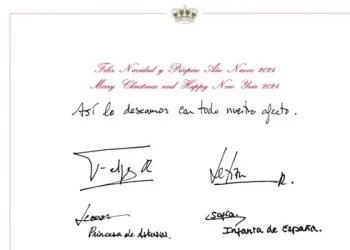 Feliz Navidad y Próspero Año Nuevo 2024
Merry Christmas and Happy New Year 2024
Así lo deseamos con todo nuestro afecto.
Felipe R Letizia R.
Leonor Sofía
Princesa de Asturias Infanta de España.